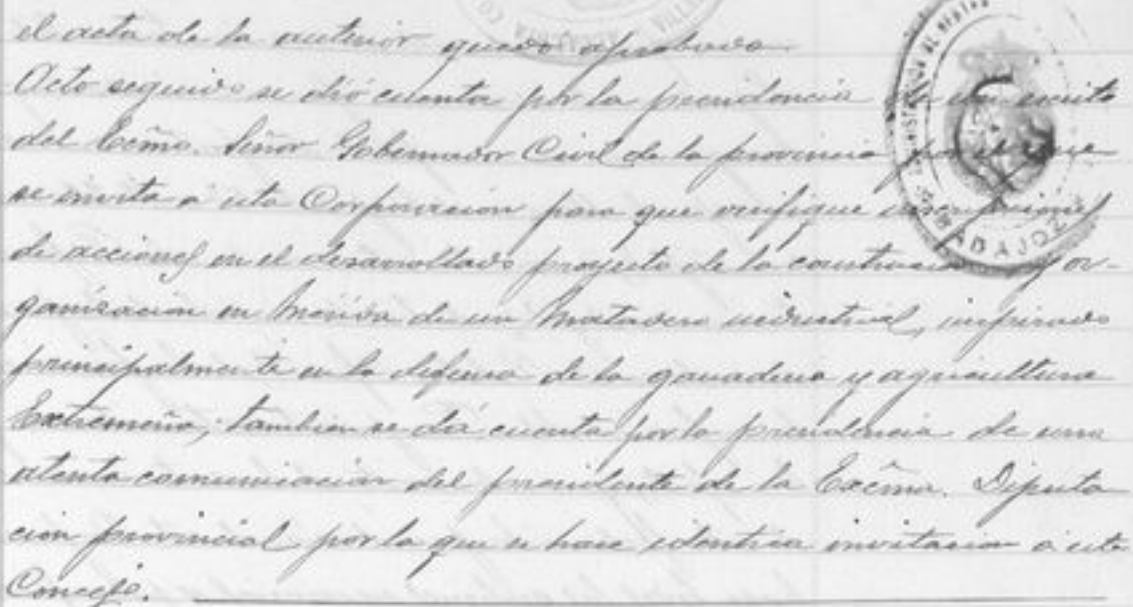 el acta de la anterior quedó aprobada
Acto seguido se dió cuenta por la presidencia de un escrito
del Excmo. Señor Gobernador Civil de la provincia por el que
se invita a esta Corporacion para que verifique suscripciones
de acciones en el desarrollado proyecto de la construccion y or-
ganizacion en Merida de un Matadero industrial, inspirado
principalmente en la defensa de la ganaderia y agricultura
Extremeña; tambien se dá cuenta por la presidencia de una
atenta comunicacion del presidente de la Excma. Diputa
cion provincial por la que se hace identica invitacion a este
Concejo.
BADAJOZ